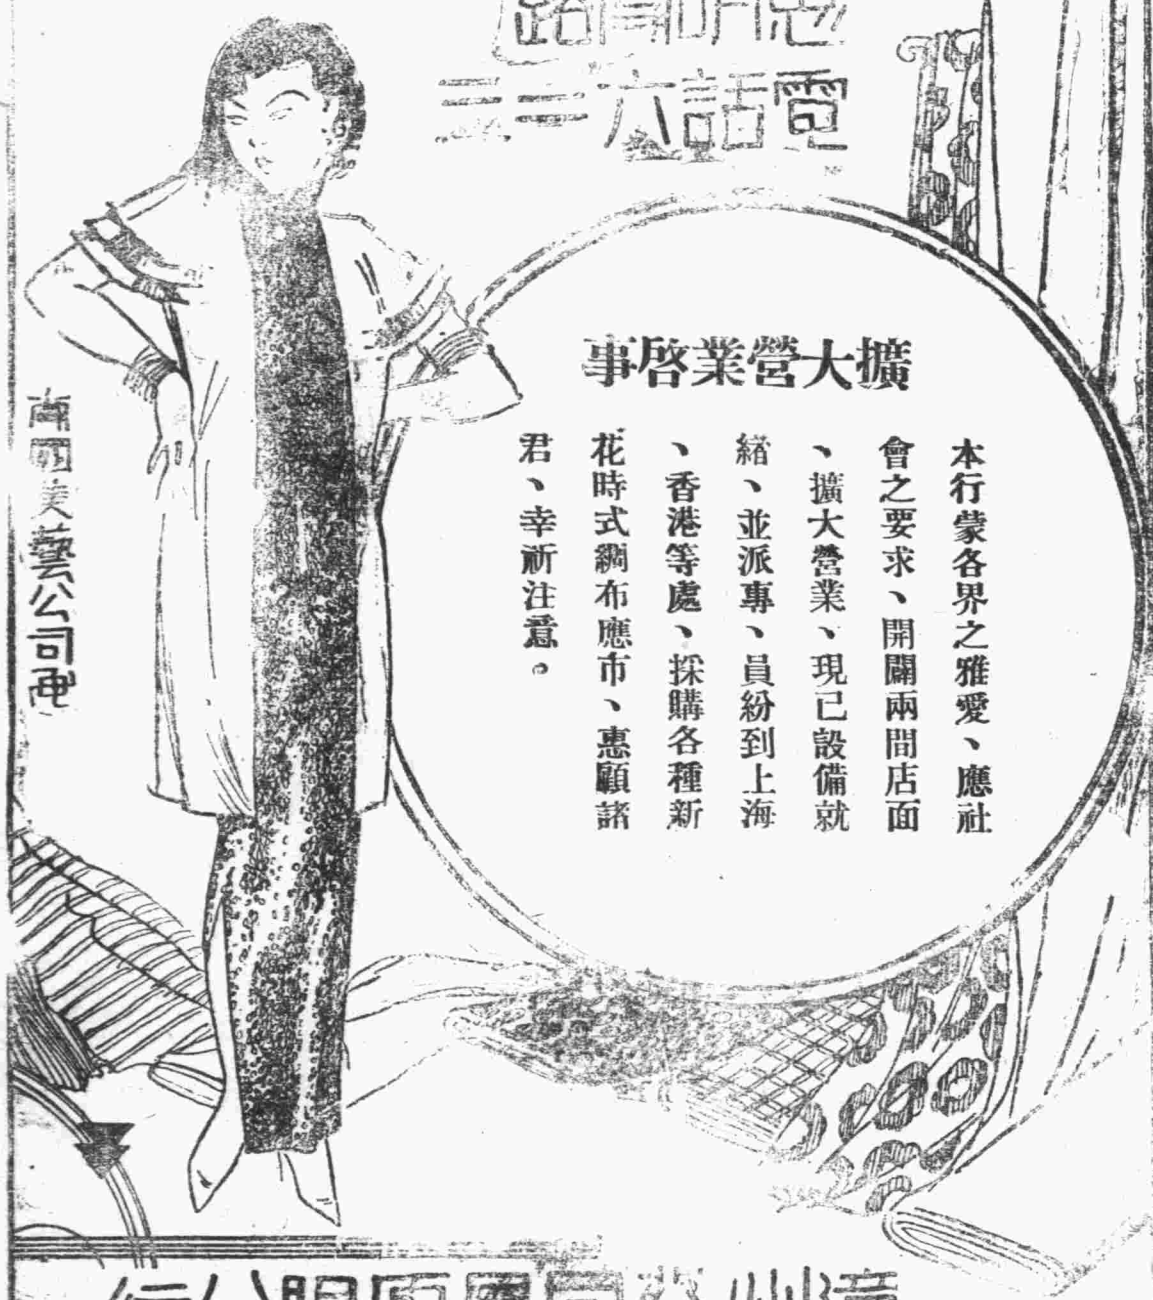 電話六二三
擴大營業啓事
本行蒙各界之雅愛、應社
會之要求、開闢兩間店面
、擴大營業、現已設備就
緒、並派專、員紛到上海
、香港等處、採購各種新
花時式綢布應市、惠顧諸
君、幸祈注意。
南國美藝公司